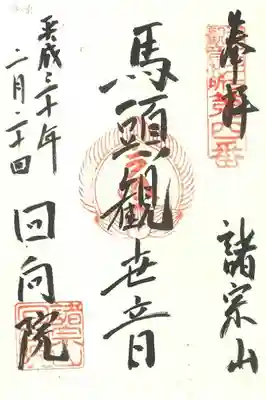 奉拝
第四番
諸宗山
馬頭観世音
回向院
平成三十年
二月二十日